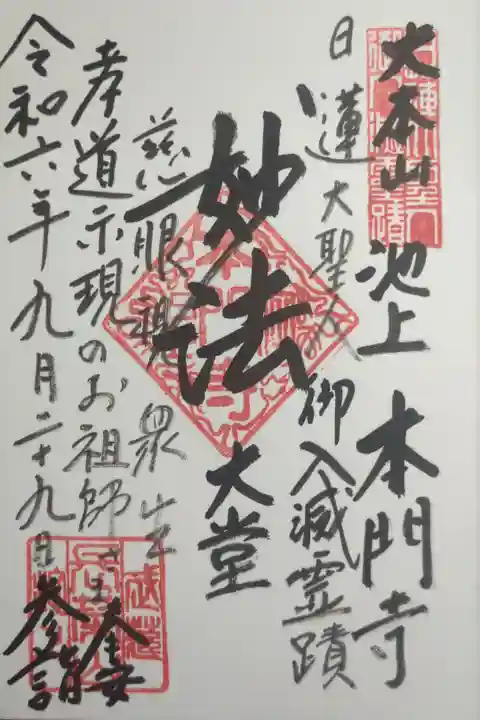 大本山 池上 本門寺
日蓮大聖人 御入滅霊蹟
妙法 大堂
慈眼視衆生
孝道示現のお祖師さま
令和六年九月二十九日 参詣